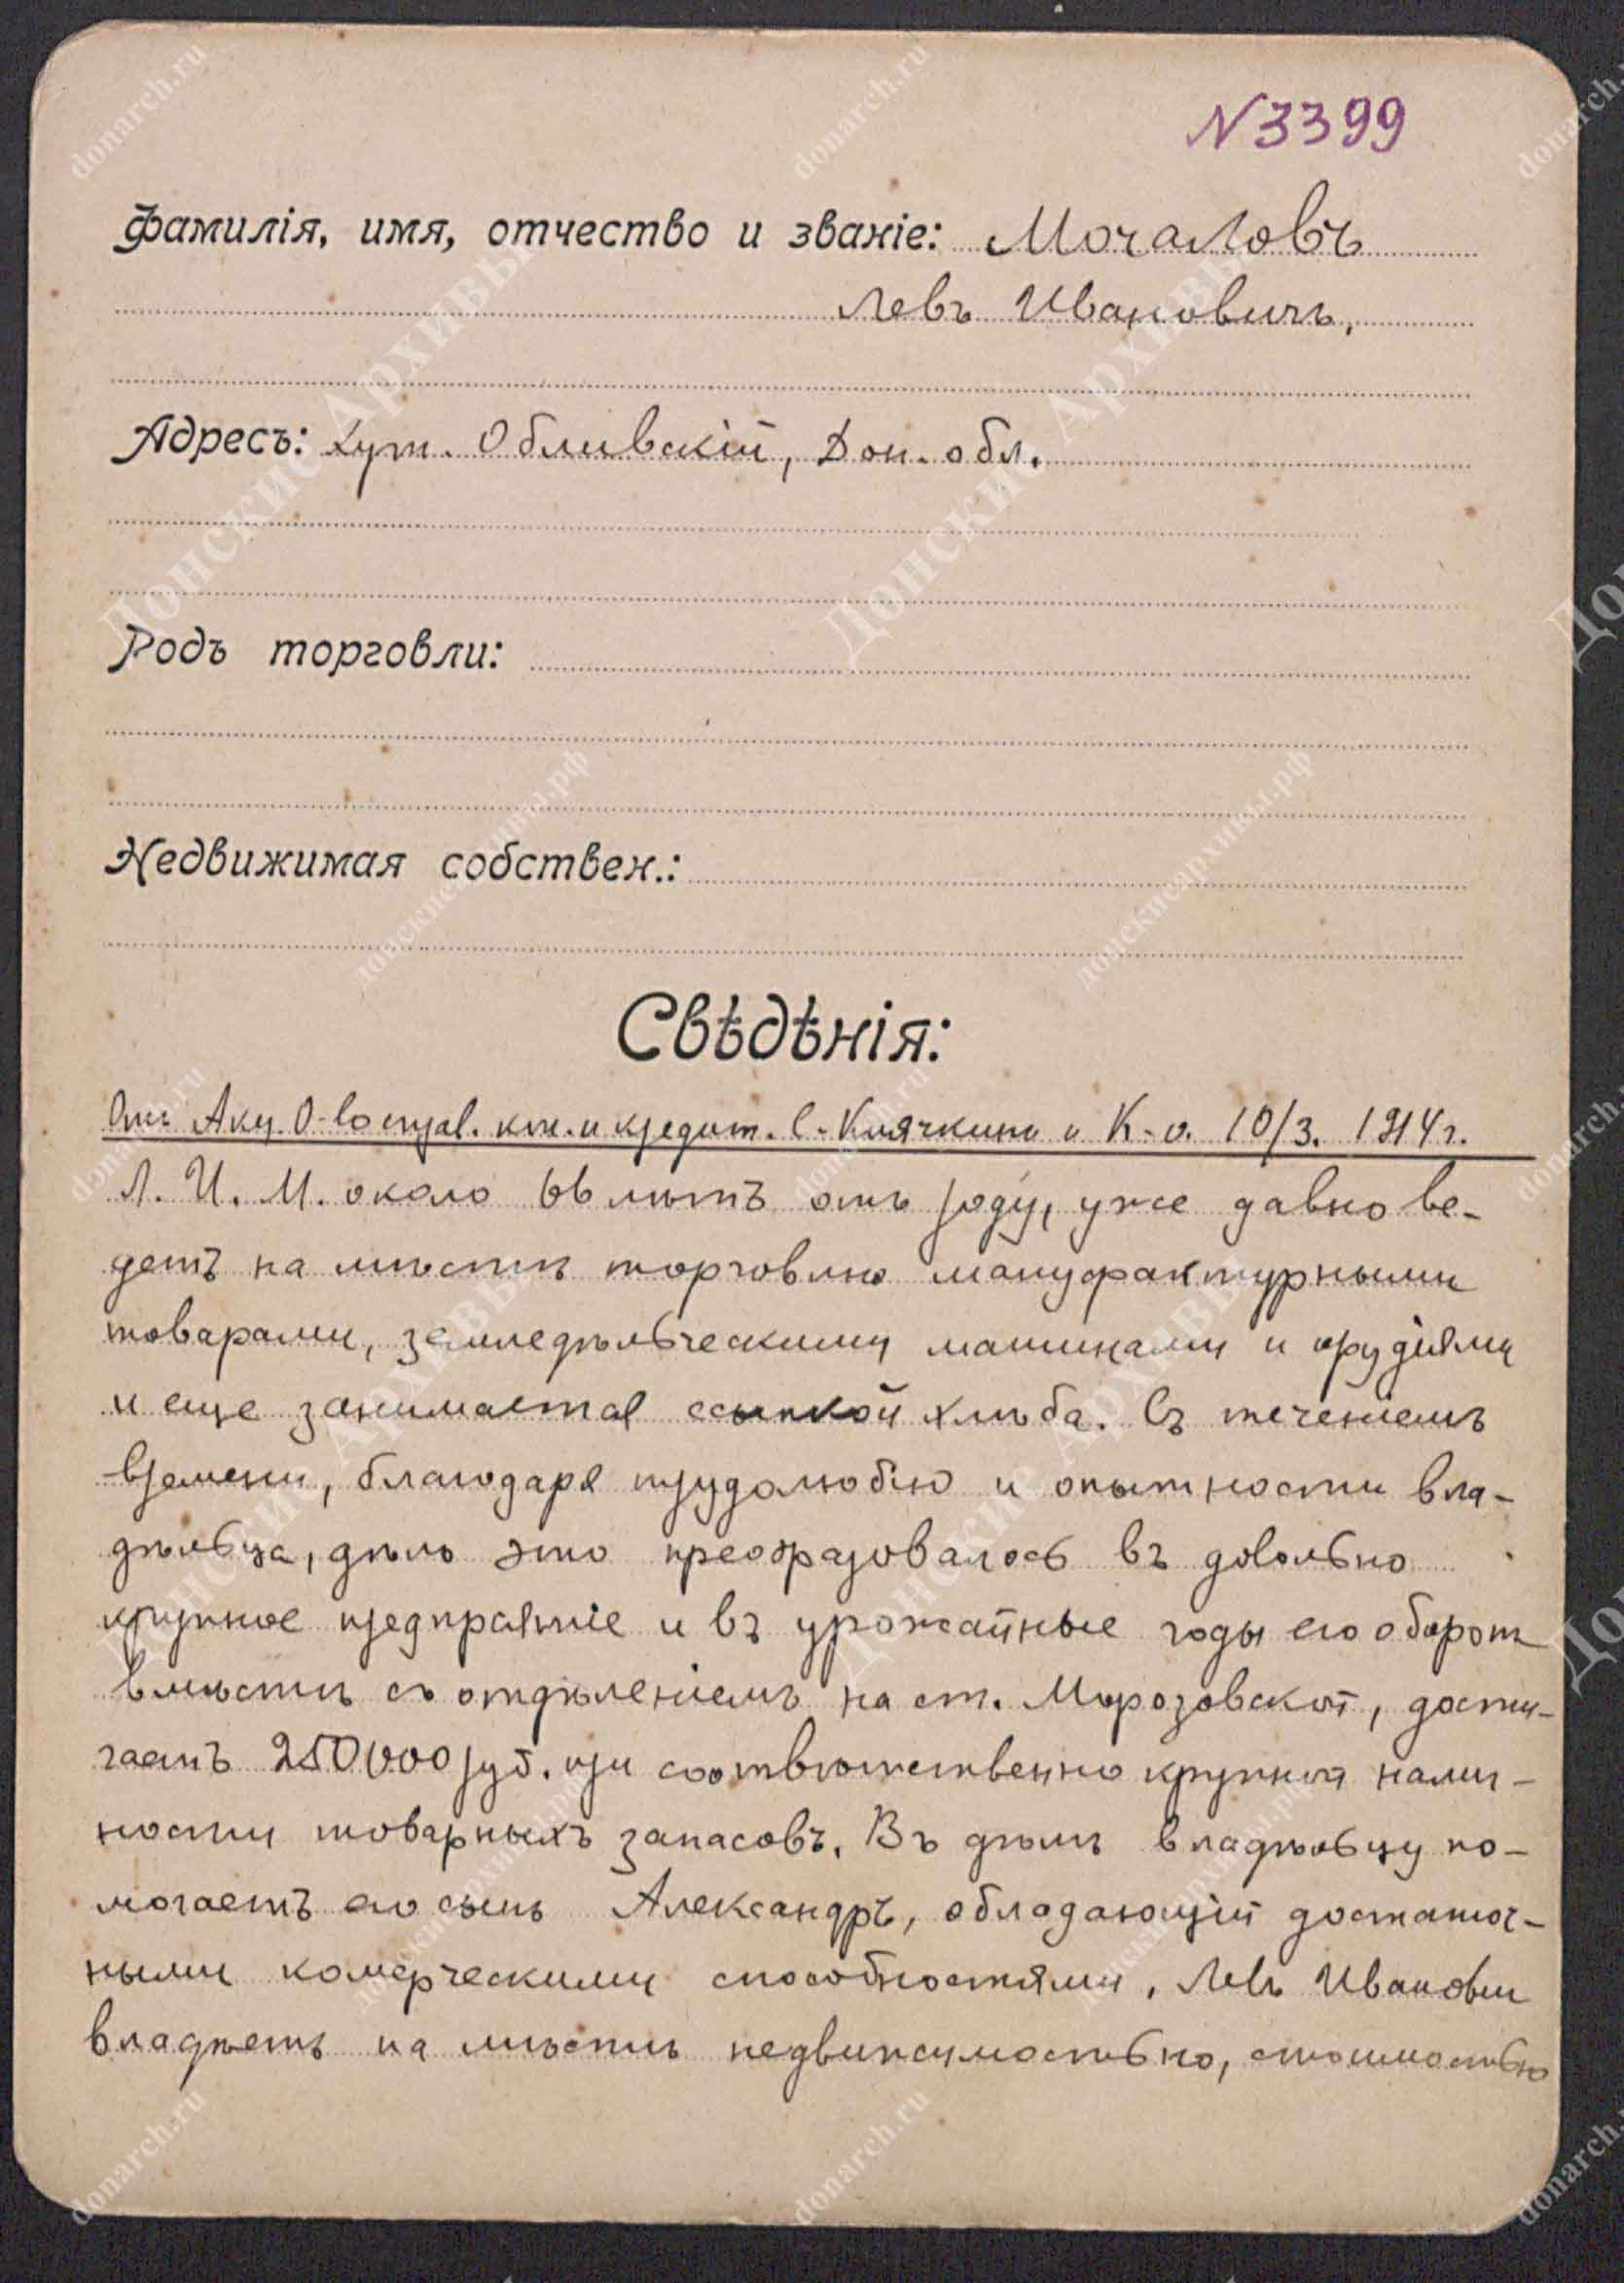 N 3399
Фамилія, имя, отчество и званіе: Мочаловъ
Левъ Ивановичъ,
Адресъ: Хут. Обливскій, Дон. обл.
Родъ торговли:
Недвижимая собствен.:
Свѣдѣнія:
Отъ Акц. О-во справ. кон. и кредит. С. Клячкинъ и К-о. 10/3. 1914 г.
Л. И. М. около 66 лѣтъ отъ роду, уже давно ве-
детъ на мѣстѣ торговлю мануфактурными
товарами, земледѣльческими машинами и орудіями
и еще занимается ссыпкой хлѣба. Съ теченіемъ
времени, благодаря трудолюбію и опытности вла-
дѣльца, дѣло это преобразовалось въ довольно
крупное предпріятіе и въ урожайные годы его оборотъ
вмѣстѣ съ отдѣленіемъ на ст. Морозовской, дости-
гаетъ 250000 руб. при соотвѣтственно крупной налич-
ности товарныхъ запасовъ. Въ дѣлѣ владѣльцу по-
могаетъ его сынъ Александръ, обладающій достаточ-
ными комерческими способностями. Левъ Иванович
владѣетъ на мѣстѣ недвижимостью, стоимостью
donarch.ru
Донские Архивы
донскиеархивы.рф